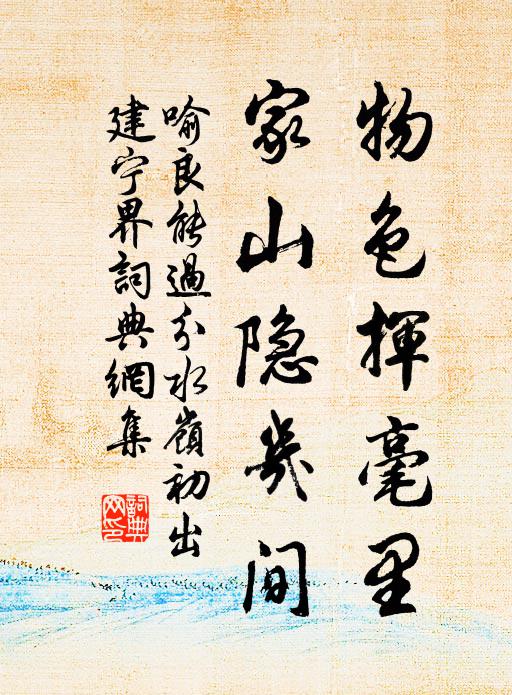 物色揮毫里
家山隐幾間
喻良能過分水嶺初出
建宁界詞典網集
詞典
网印